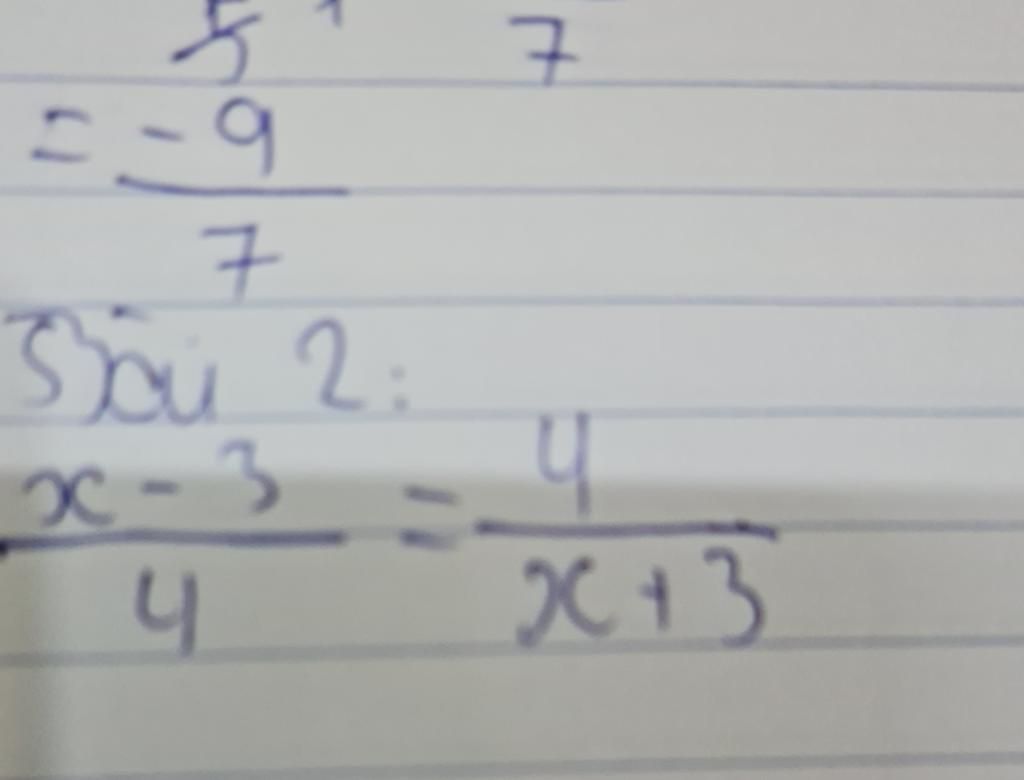 5 1 7
= -9/7
Bài 2:
x - 3/4 = 4/x + 3